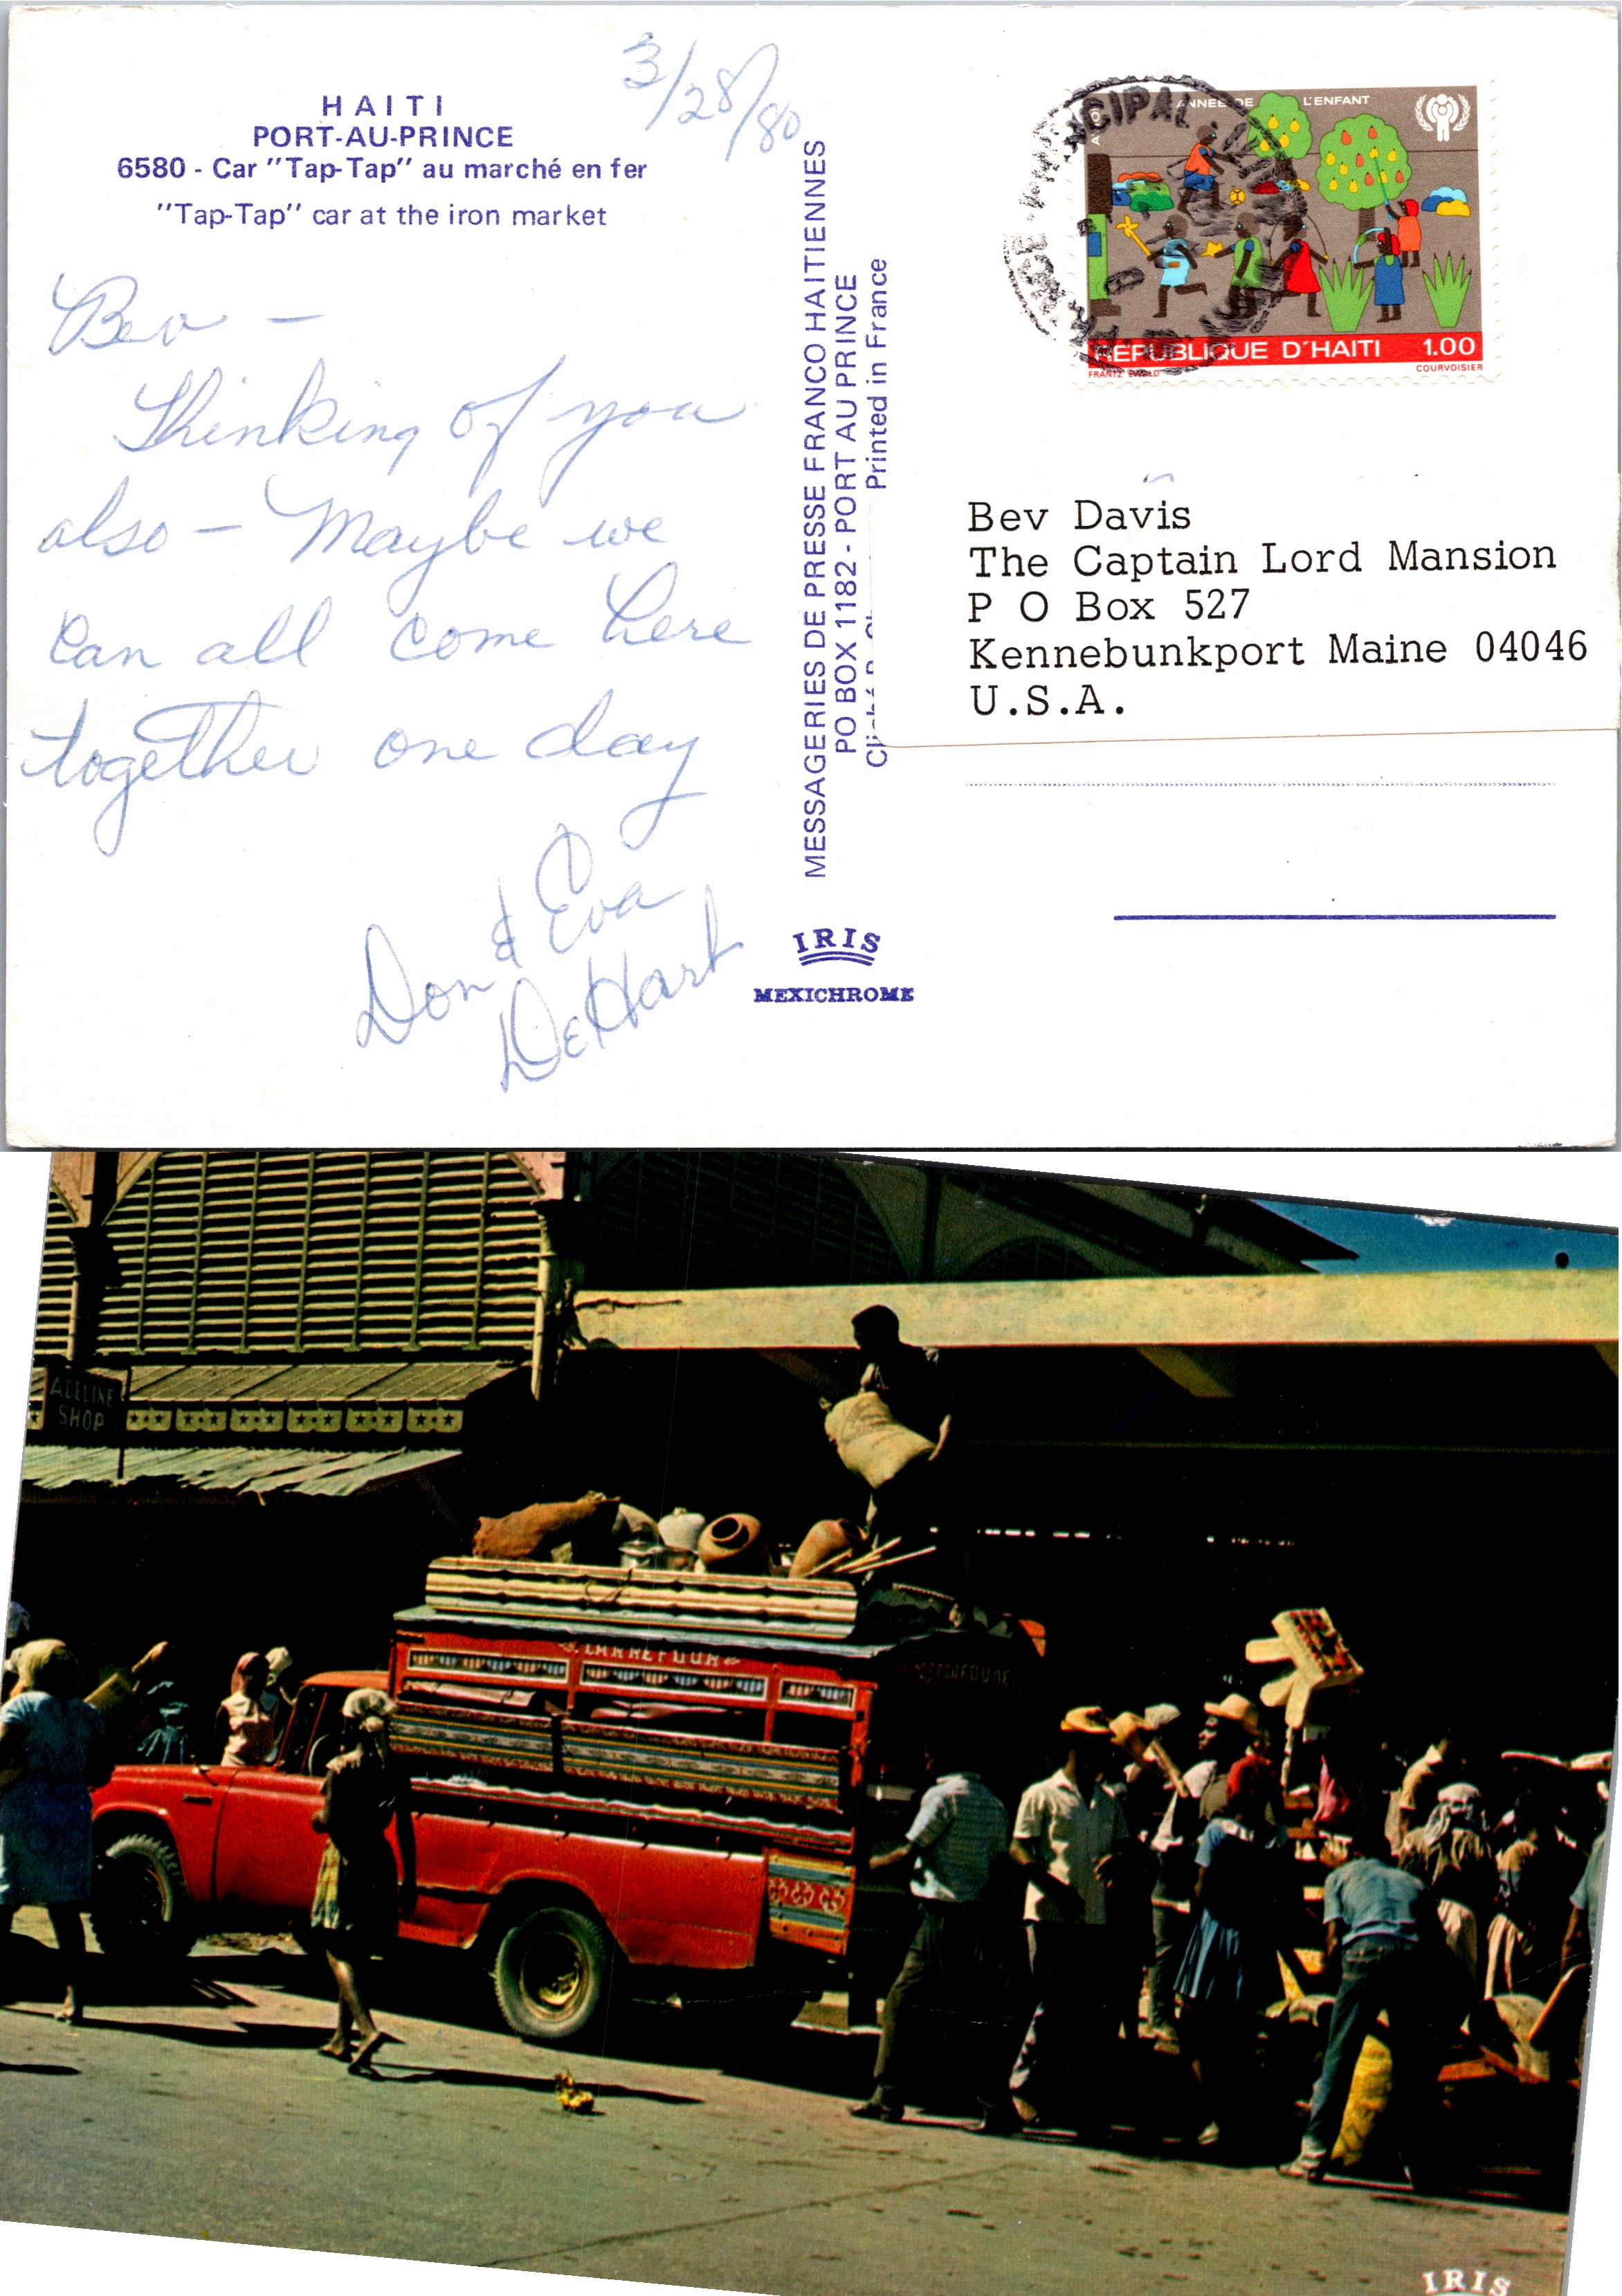 3/28/80
HAITI
PORT-AU-PRINCE
6580 - Car "Tap-Tap" au marché en fer
"Tap-Tap" car at the iron market
Bev —
Thinking of you
also — Maybe we
can all come here
together one day
Don & Eva
DeHart
MESSAGERIES DE PRESSE FRANCO HAITIENNES
PO BOX 1182 - PORT AU PRINCE
Printed in France
IRIS
MEXICHROME
ANNEE DE L'ENFANT
REPUBLIQUE D'HAITI 1.00
FRANTZ COURVOISIER
Bev Davis
The Captain Lord Mansion
P O Box 527
Kennebunkport Maine 04046
U.S.A.
ADELINE
SHOP
CARREFOUR
IRIS